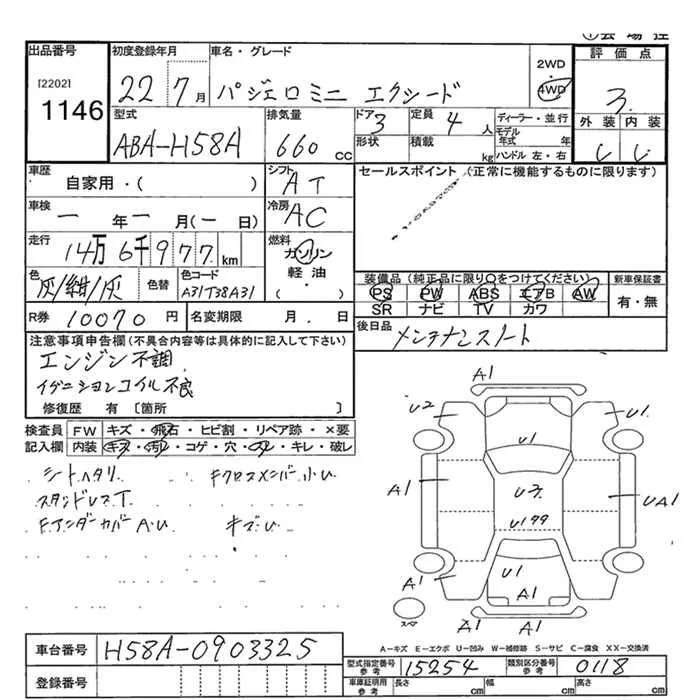 ①会場控
出品番号 初度登録年月 車名・グレード 評価点
[2202] 22 7月 パジェロミニ エクシード 2WD 4WD 3
1146
型式 排気量 ドア 定員 ディーラー・並行 外装 内装
ABA-H58A 660cc 3 4人 モデル年式 年
形状 積載 kg ハンドル 左・右
車歴 シフト セールスポイント (正常に機能するものに限ります)
自家用・( ) AT
車検 冷房
一年一月(一日) AC
走行 燃料
14万6千977km ガソリン
軽油・( )
色 色替 色コード 装備品(純正品に限り○をつけてください) 新車保証書
灰/紺/灰 A31T38A31 PS PW ABS エアB AW 有・無
SR ナビ TV カワ
R券 10070円 名変期限 月. 日 後日品
メンテナンスノート
注意事項申告欄(不具合内容等は具体的に記入して下さい)
エンジン不調
イグニションコイル不良
修復歴 有 [箇所 ]
検査員 FW キズ・飛石・ヒビ割・リペア跡・×要
記入欄 内装 キズ・汚レ・コゲ・穴・スレ・キレ・破レ
シートヘタリ Fクロスメンバー小U
スタッドレスT
FインナーカバーAU キズU
A1
U2 U1
U1
A1 U3 UA1
U177
A1 U1 A1
A1
A1 A1
スペア
A-キズ E-エクボ U-凹み W-補修跡 S-サビ C-腐食 XX-交換済
車台番号 H58A-0903325 型式指定番号 参考 15254 類別区分番号 参考 0118
登録番号 車庫証明用 参考 長さ cm 幅 cm 高さ cm